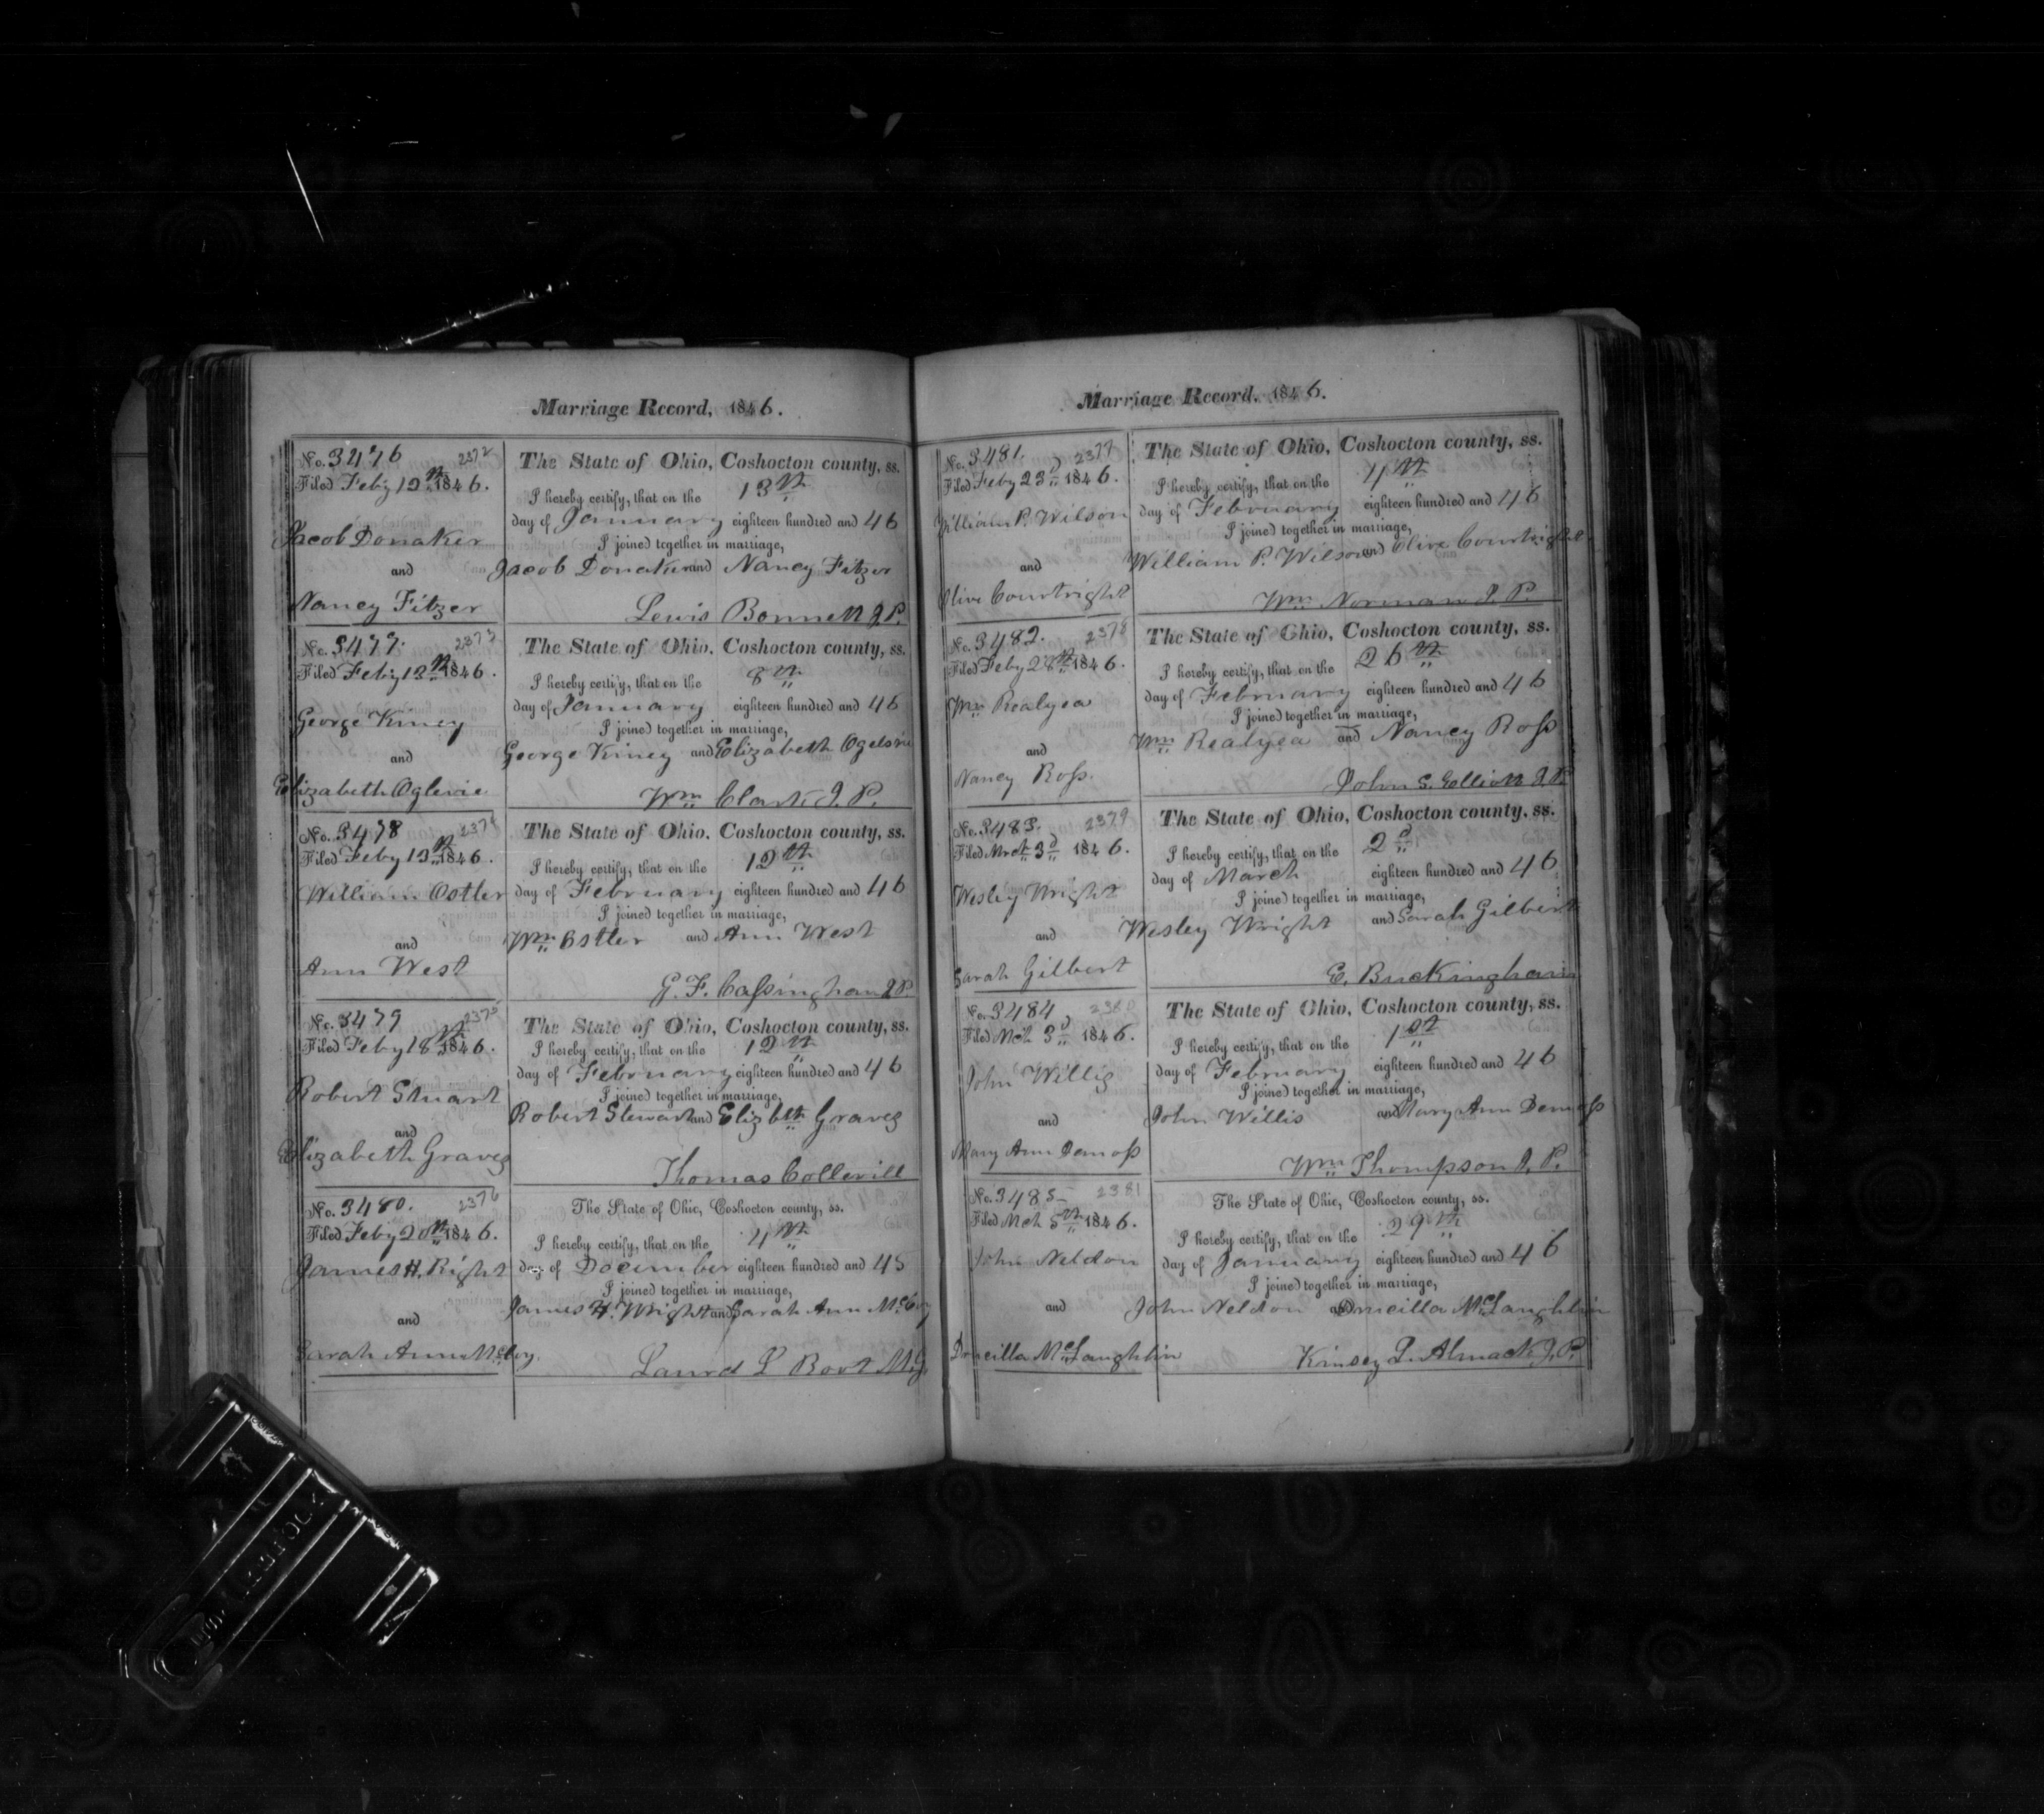 Marriage Record, 1846.
No. 3476 2372
Filed Feby 12th 1846.
Jacob Donaker
and
Nancy Fitzer
The State of Ohio, Coshocton county, ss.
I hereby certify, that on the 13th
day of January eighteen hundred and 46
I joined together in marriage,
Jacob Donaker and Nancy Fitzer
Lewis Bonnett J.P.
No. 3477. 2373
Filed Feby 12th 1846.
George Kiney
and
Elizabeth Oglevie
The State of Ohio, Coshocton county, ss.
I hereby certify, that on the 8th
day of January eighteen hundred and 46
I joined together in marriage,
George Kiney and Elizabeth
Wm Clark J.P.
No. 3478 2374
Filed Feby 13th 1846.
William Ostler
and
Ann West
The State of Ohio, Coshocton county, ss.
I hereby certify, that on the 12th
day of February eighteen hundred and 46
I joined together in marriage,
Wm Ostler and Ann West
G. F. Cassingham J.P.
No. 3479 2375
Filed Feby 18th 1846.
Robert Stuart
and
Elizabeth Graves
The State of Ohio, Coshocton county, ss.
I hereby certify, that on the 12th
day of February eighteen hundred and 46
I joined together in marriage,
Robert Stewart and Elizbth Graves
Thomas Collevill
No. 3480. 2376
Filed Feby 20th 1846.
James H. Right
and
Sarah Ann McCoy.
The State of Ohio, Coshocton county, ss.
I hereby certify, that on the 4th
day of December eighteen hundred and 45
I joined together in marriage,
James H. Wright and Sarah Ann McCoy
L Root M.G.
Marriage Record, 1846.
No. 3481. 2377
Filed Feby 23d 1846.
William P. Wilson
and
Olive Courtright
The State of Ohio, Coshocton county, ss.
I hereby certify, that on the 4th
day of February eighteen hundred and 46
I joined together in marriage,
William P. Wilson and Olive Courtright
Wm Norman J.P.
No. 3482. 2378
Filed Feby 28th 1846.
Wm Realyea
and
Nancy Ross.
The State of Ohio, Coshocton county, ss.
I hereby certify, that on the 26th
day of February eighteen hundred and 46
I joined together in marriage,
Wm Realyea and Nancy Ross
John S. Elliott J.P.
No. 3483. 2379
Filed Mrch 3d 1846.
Wesley Wright
and
Sarah Gilbert
The State of Ohio, Coshocton county, ss.
I hereby certify, that on the 2d
day of March eighteen hundred and 46
I joined together in marriage,
Wesley Wright and Sarah Gilbert
E. Buckingham
No. 3484 2380
Filed Mch 3d 1846.
John Willis
and
Mary Ann Demoss
The State of Ohio, Coshocton county, ss.
I hereby certify, that on the 1st
day of February eighteen hundred and 46
I joined together in marriage,
John Willis and Mary Ann Demoss
Wm Thompson J.P.
No. 3485 2381
Filed Mch 5th 1846.
John Neldon
and
Drucilla McLaughlin
The State of Ohio, Coshocton county, ss.
I hereby certify, that on the 29th
day of January eighteen hundred and 46
I joined together in marriage,
John Neldon and Drucilla McLaughlin
Kinsey L. Almack J.P.